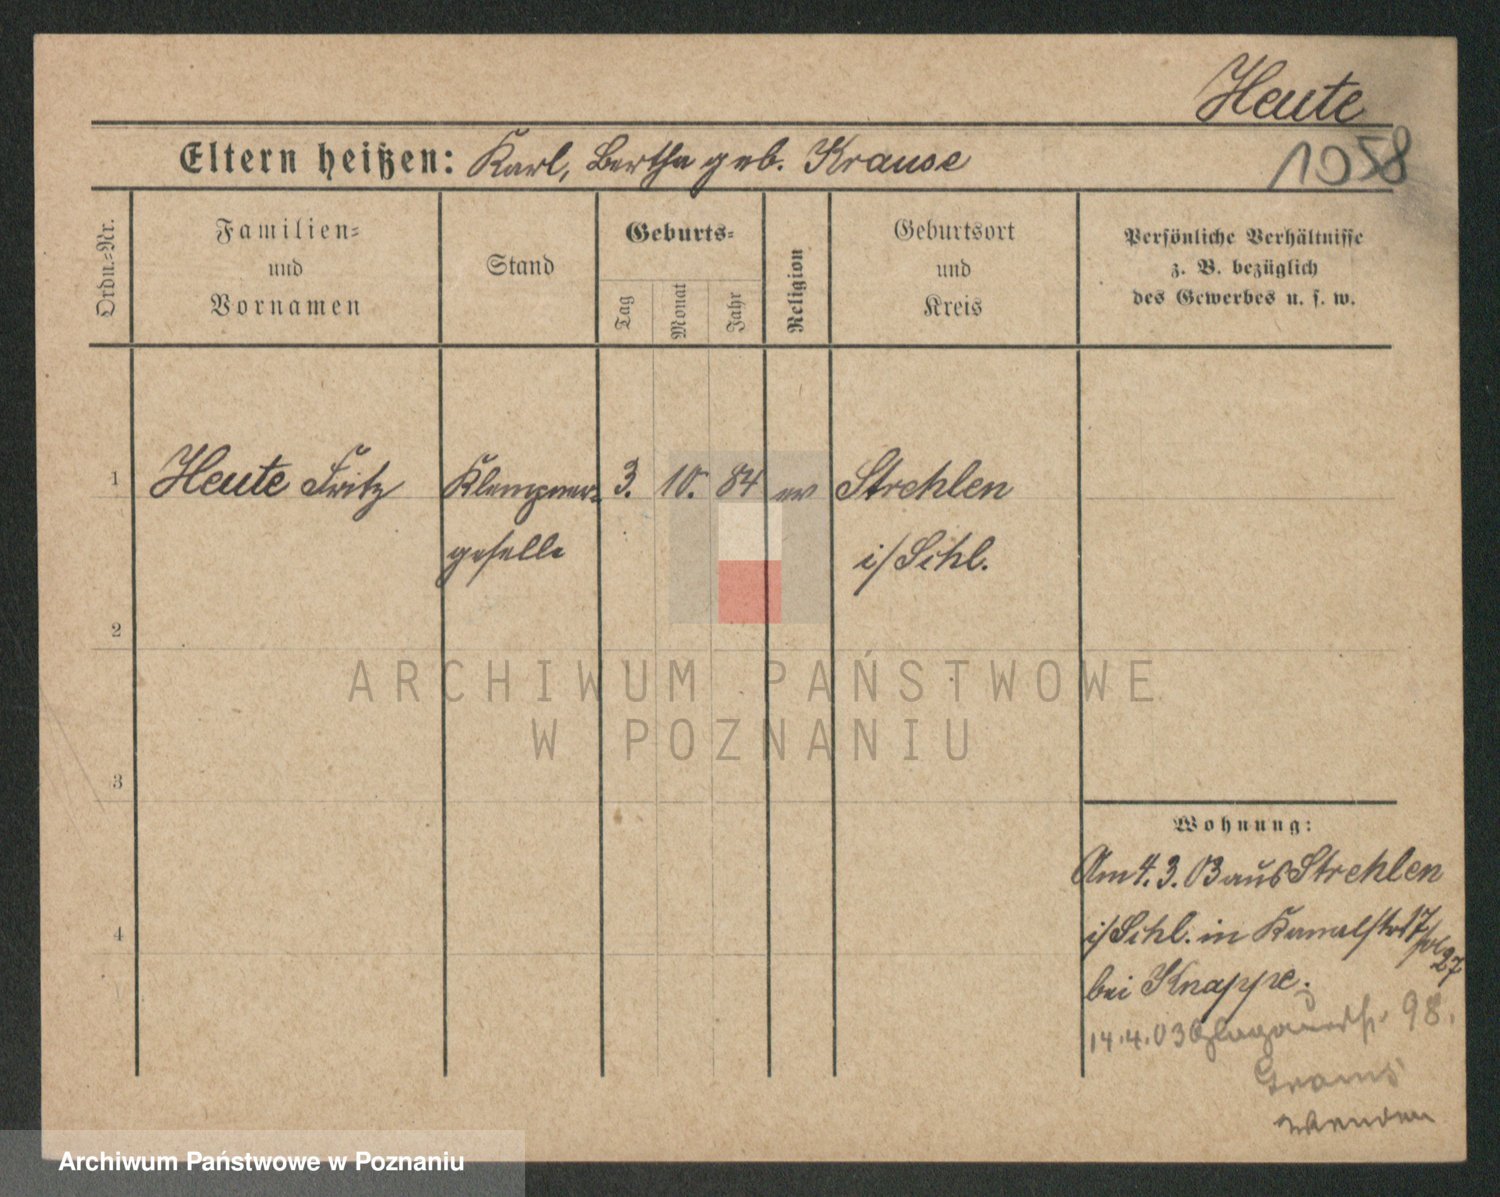 Heute
1058
Eltern heißen: Karl, Bertha geb. Krause
Ordn.-Nr.
Familien-
und
Vornamen
Stand
Geburts-
Tag
Monat
Jahr
Religion
Geburtsort
und
Kreis
Persönliche Verhältnisse
z. B. bezüglich
des Gewerbes u. s. w.
1 Heute Fritz Klempner- 3. 10. 84 ev Strehlen
geselle i/Schl.
2
ARCHIWUM PAŃSTWOWE
W POZNANIU
3
Wohnung:
Am 4. 3. 03 aus Strehlen
4
i/Schl. in Kanalstr 17
27
bei Knappe.
14.4.03 Glogauerstr. 98.
wenden
Archiwum Państwowe w Poznaniu